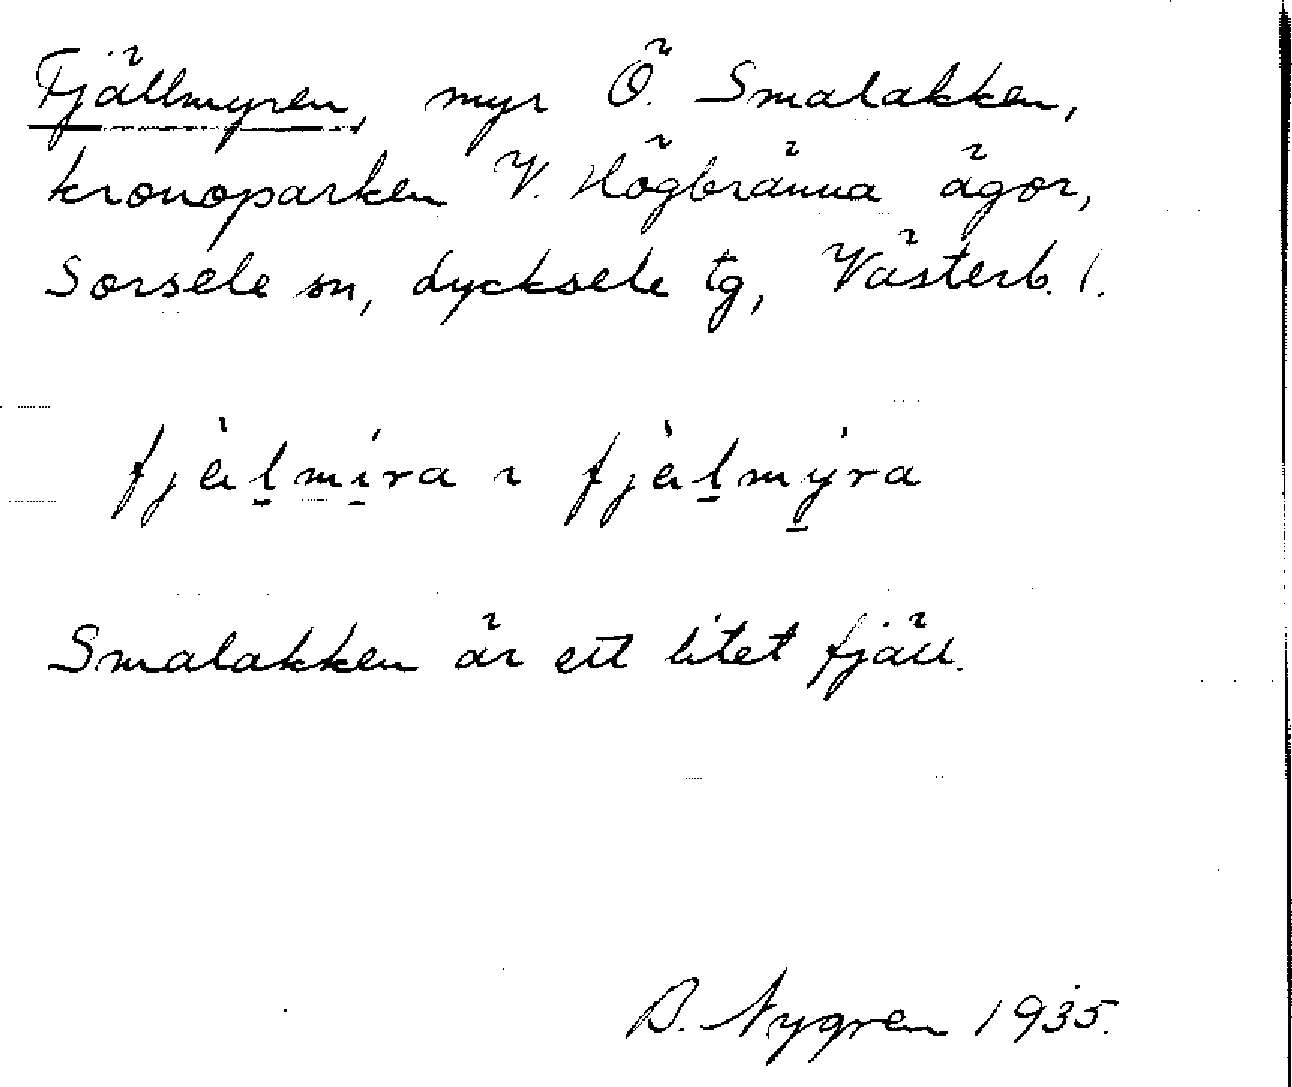 Fjällmyren, myr Ö. Smalakken,
kronoparken V. Högbränna ägor,
Sorsele sn, Lycksele tg, Västerb. l.
fjèl̲mí̲ra ~ fjèl̲mý̲ra
Smalakken är ett litet fjäll.
B. Nygren 1935.